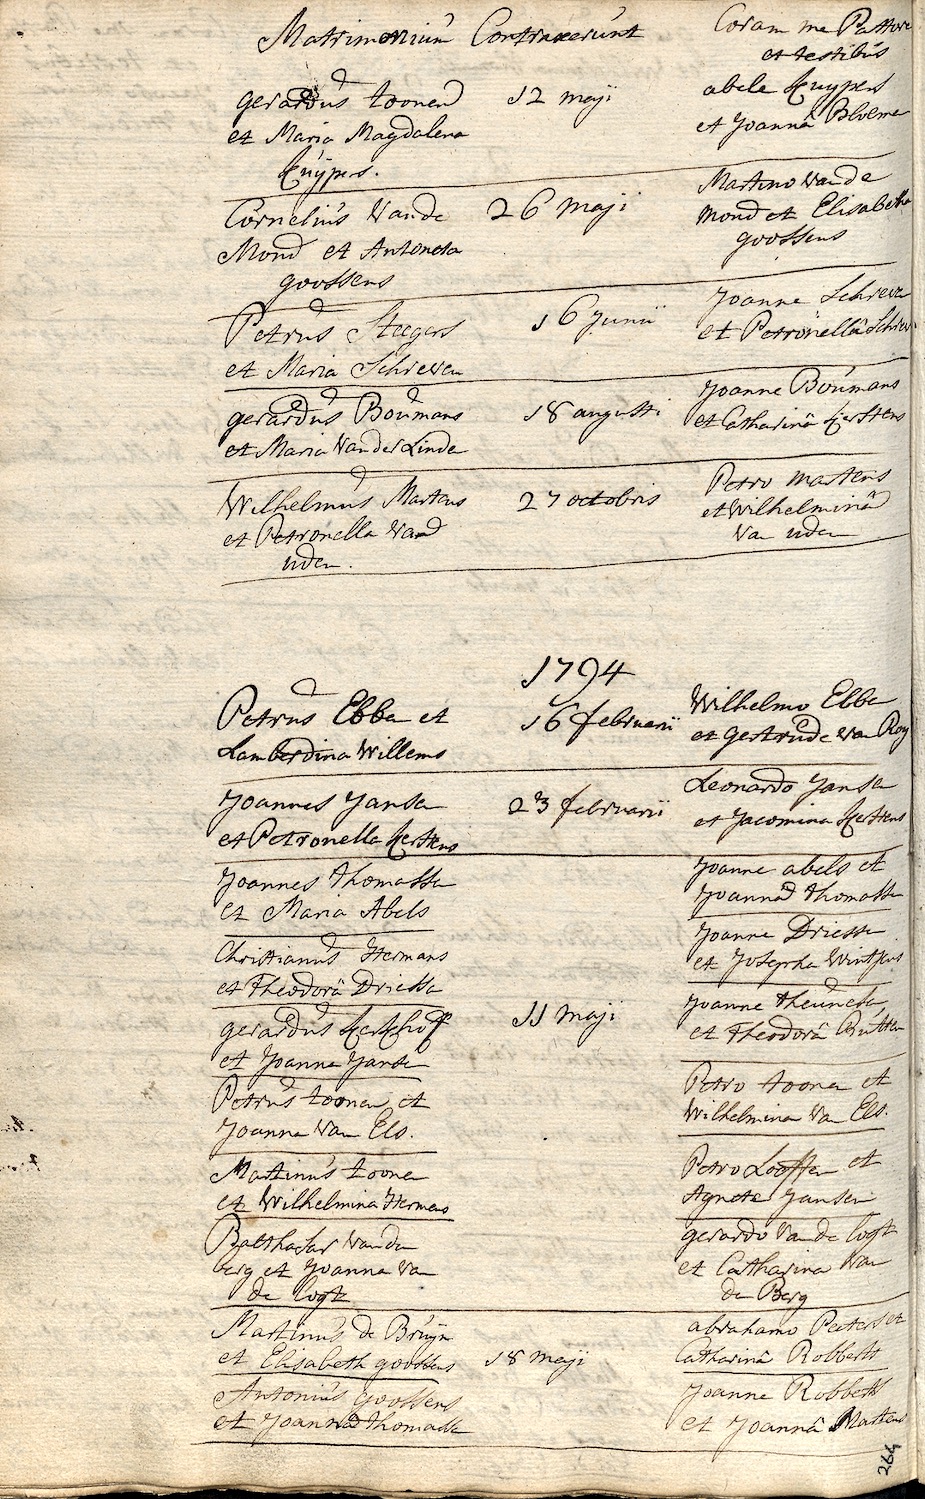 Matrimonium Contraxerunt
Coram me Pastore
et testibus
gerardus toonen
et Maria Magdalena
Kuÿpers.
12 maji
abele Kuypers
et Joannâ Bloeme
Cornelius Van de
Mond et Antonetta
goossens
26 maji
Martino van de
mond et Elisabetha
goossens
Petrus Steegers
et Maria Schreven
16 Junii
Joanne Schreven
et Petronellâ Schreven
gerardus Boumans
et Maria Van der Linden
18 augusti
Joanne Boumans
et Catharinâ Kerstens
Wilhelmus Martens
et Petronella Van
uden.
27 octobris
Petro martens
et Wilhelminâ
Van uden
1794
Petrus Ebben et
Lamberdina Willems
16 februarii
Wilhelmo Ebben
et gertrude van Roy
Joannes Jansen
et Petronella Kerstens
23 februarii
Leonardo Jansen
et Jacomina Kerstens
Joannes thomassen
et Maria Abels
Joanne abels et
Joanna thomassen
Christianus Hermans
et Theodorâ Driessen
Joanne Driessen
et Josepha
gerardus Kerkhoff
et Joanna Jansen
11 maji
Joanne theunissen
et Theodorâ Rutten
Petrus toonen et
Joanna Van Els.
Petro toonen et
Wilhelmina Van Els.
Martinus toonen
et Wilhelmina Hermens
Petro Looffen et
Agnete Jansen
Balthasar Van den
berg et Joanna Van
de logt
gerardo Van de logt
et Catharina Van
den Berg
Martinus de Bruÿn
et Elisabeth goossens
18 maji
abrahamo Peeters et
Catharinâ Robberts
Antonius goossens
et Joanna thomassen
Joanne Robberts
et Joannâ Martens
264